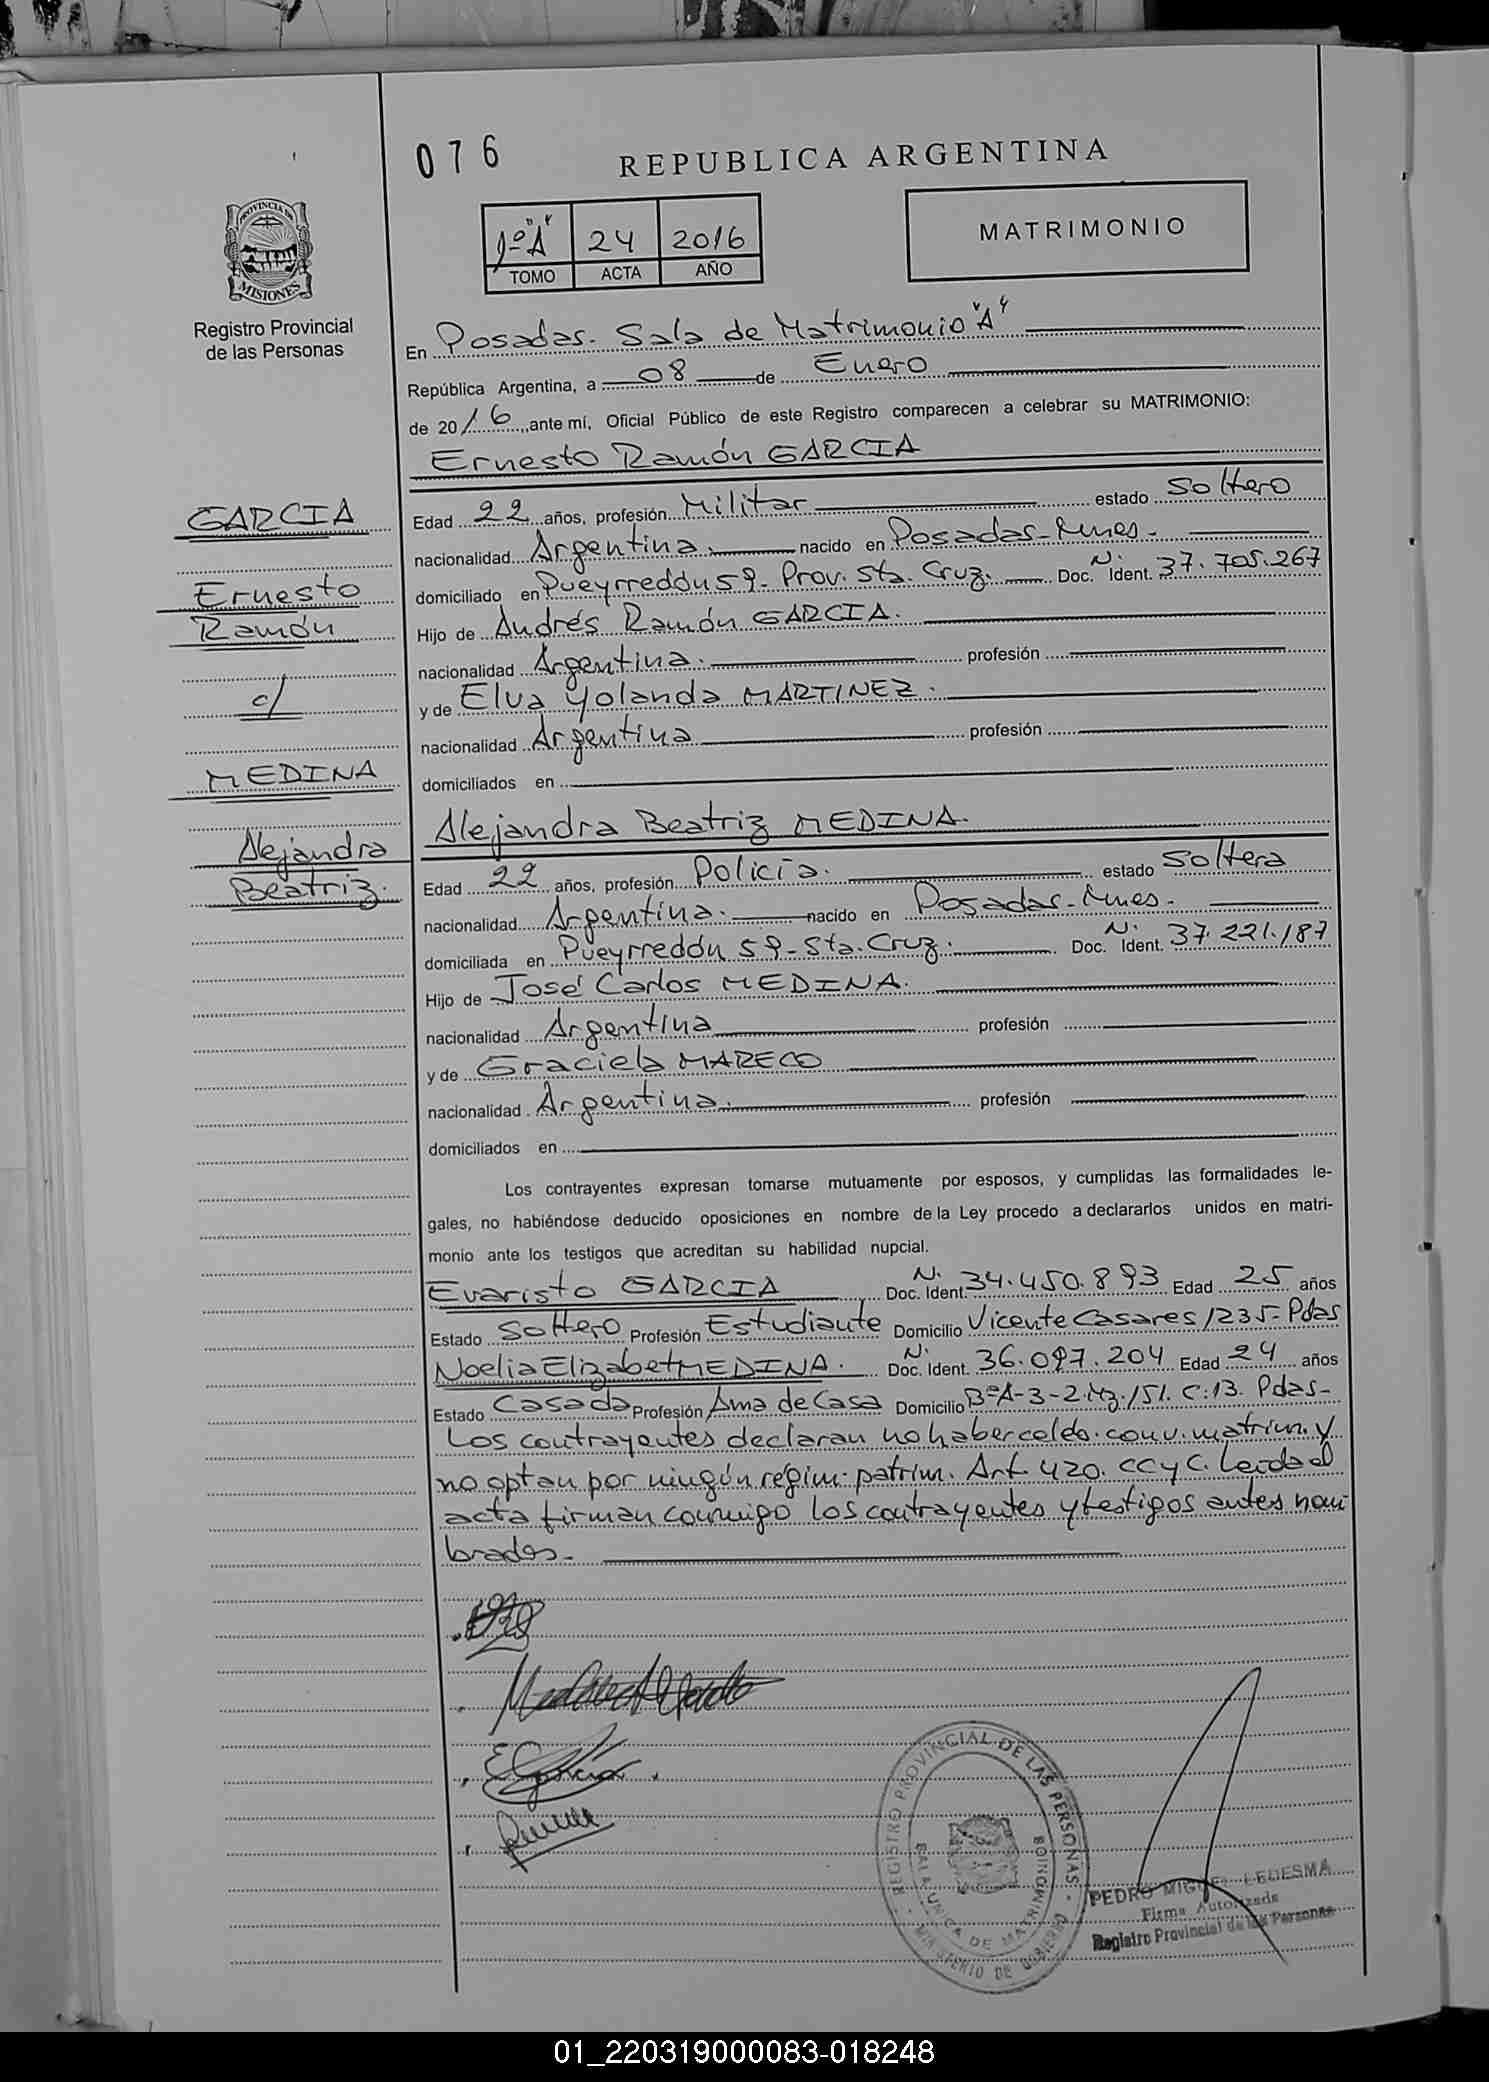 076
REPUBLICA ARGENTINA
PROVINCIA DE
MISIONES
Registro Provincial
de las Personas
1º "A" 24 2016
TOMO ACTA AÑO
MATRIMONIO
En Posadas. Sala de Matrimonio "A"
República Argentina, a 08 de Enero
de 2016, ante mí, Oficial Público de este Registro comparecen a celebrar su MATRIMONIO:
Ernesto Ramón GARCIA
GARCIA
Ernesto
Ramón
c/
MEDINA
Alejandra
Beatriz.
Edad 22 años, profesión Militar estado Soltero
nacionalidad Argentina. nacido en Posadas-Mnes.
domiciliado en Pueyrredón 59- Prov. Sta. Cruz. Doc. Nº Ident. 37.705.267
Hijo de Andrés Ramón GARCIA.
nacionalidad Argentina. profesión
y de Elva Yolanda MARTINEZ.
nacionalidad Argentina profesión
domiciliados en
Alejandra Beatriz MEDINA.
Edad 22 años, profesión Policía. estado Soltera
nacionalidad Argentina. nacido en Posadas-Mnes.
domiciliada en Pueyrredón 59-Sta. Cruz. Doc. Nº Ident. 37.221.187
Hijo de José Carlos MEDINA.
nacionalidad Argentina profesión
y de Graciela MARECO
nacionalidad Argentina. profesión
domiciliados en
Los contrayentes expresan tomarse mutuamente por esposos, y cumplidas las formalidades le-
gales, no habiéndose deducido oposiciones en nombre de la Ley procedo a declararlos unidos en matri-
monio ante los testigos que acreditan su habilidad nupcial.
Evaristo GARCIA Doc. Nº Ident. 34.450.893 Edad 25 años
Estado Soltero Profesión Estudiante Domicilio Vicente Casares 1235-Pdas
Noelia Elizabet MEDINA. Doc. Nº Ident. 36.097.204 Edad 24 años
Estado Casada Profesión Ama de Casa Domicilio BºA-3-2.Mz.151. C:13. Pdas-
Los contrayentes declaran no haber celdo. conv. matrim. y
no optan por ningún régim. patrim. Art. 420. CCyC. Leída el
acta firman conmigo los contrayentes y testigos antes nom
brados-
EGarcia
REGISTRO PROVINCIAL DE LAS PERSONAS
SALA UNICA DE MATRIMONIOS
MINISTERIO DE GOBIERNO
PEDRO MIGUEL LEDESMA
Firma Autorizada
Registro Provincial de las Personas
01_220319000083-018248